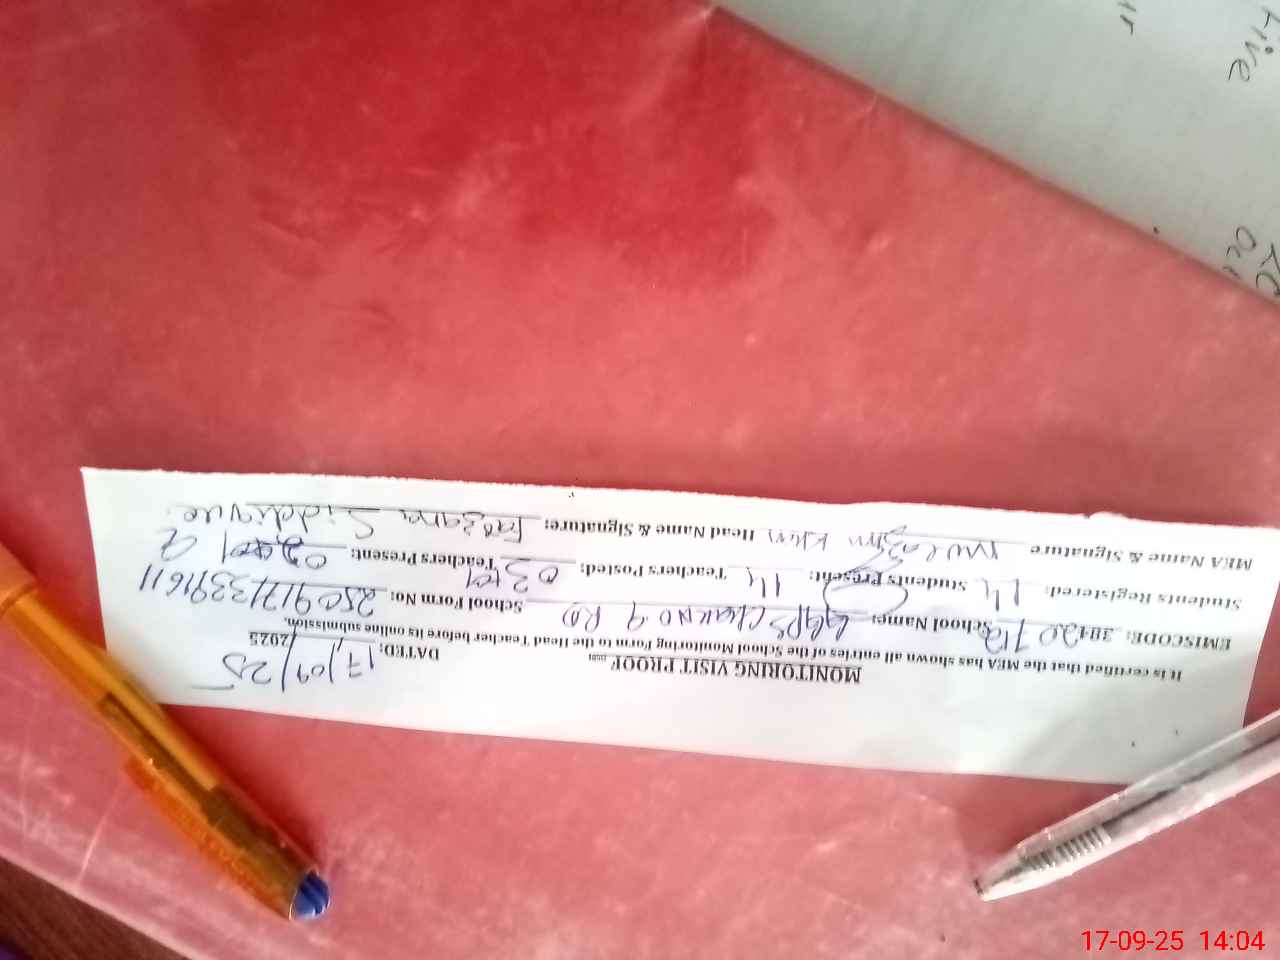 MONITORING VISIT PROOF
DATED: 17/09/25 2025
It is certified that the MEA has shown all the entries of the School Monitoring Form to the Head Teacher before its online submission.
EMISCODE: School Name: GGPS CHAK NO 9 RD School Form No: 250917/3391611
Students Registered: 14 Students Present: 14 Teachers Posted: 03 Teachers Present:
MEA Name & Signature Khan Head Name & Signature: Farzana Siddique
tive
ur
17-09-25 14:04